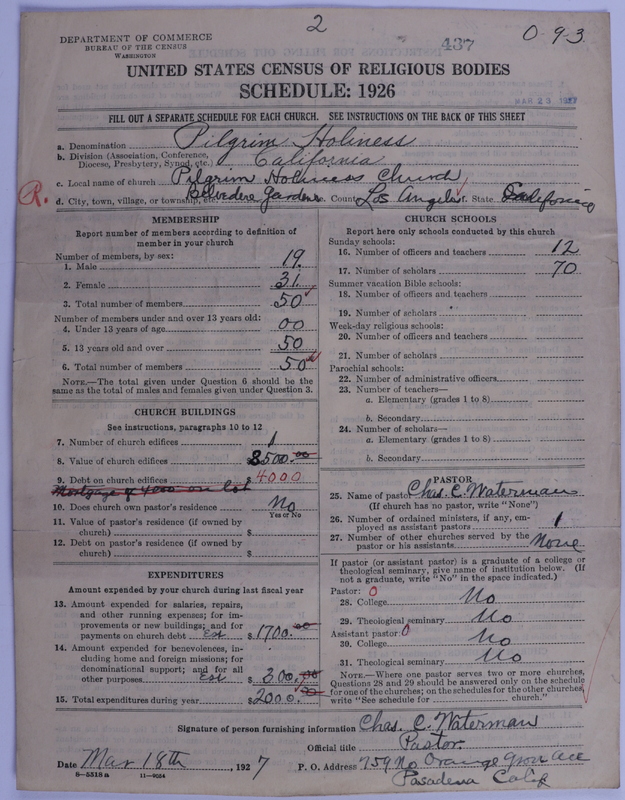 2
DEPARTMENT OF COMMERCE
BUREAU OF THE CENSUS
WASHINGTON
437
0-9-3
UNITED STATES CENSUS OF RELIGIOUS BODIES
SCHEDULE: 1926
MAR 23 1927
FILL OUT A SEPARATE SCHEDULE FOR EACH CHURCH. SEE INSTRUCTIONS ON THE BACK OF THIS SHEET
a. Denomination Pilgrim Holiness
b. Division (Association, Conference, Diocese, Presbytery, Synod, etc.) California
c. Local name of church Pilgrim Holiness Church
R.
d. City, town, village, or township, etc. Belvedere Gardens e. County Los Angeles f. State California
MEMBERSHIP
Report number of members according to definition of
member in your church
Number of members, by sex:
1. Male 19
2. Female 31
3. Total number of members 50
Number of members under and over 13 years old:
4. Under 13 years of age 00
5. 13 years old and over 50
6. Total number of members 50
NOTE.—The total given under Question 6 should be the
same as the total of males and females given under Question 3.
CHURCH BUILDINGS
See instructions, paragraphs 10 to 12
7. Number of church edifices 1
8. Value of church edifices $3500.00
9. Debt on church edifices $4000
Mortgage of 4000 on lot
10. Does church own pastor's residence No
Yes or No
11. Value of pastor's residence (if owned by
church) $
12. Debt on pastor's residence (if owned by
church) $
EXPENDITURES
Amount expended by your church during last fiscal year
13. Amount expended for salaries, repairs,
and other running expences; for im-
provements or new buildings; and for
payments on church debt Est $1700.00
14. Amount expended for benevolences, in-
cluding home and foreign missions; for
denominational support; and for all
other purposes Est $300.00
15. Total expenditures during year $2000.00
CHURCH SCHOOLS
Report here only schools conducted by this church
Sunday schools:
16. Number of officers and teachers 12
17. Number of scholars 70
Summer vacation Bible schools:
18. Number of officers and teachers
19. Number of scholars
Week-day religious schools:
20. Number of officers and teachers
21. Number of scholars
Parochial schools:
22. Number of administrative officers
23. Number of teachers—
a. Elementary (grades 1 to 8)
b. Secondary
24. Number of scholars—
a. Elementary (grades 1 to 8)
b. Secondary
PASTOR
25. Name of pastor Chas. C. Waterman
(If church has no pastor, write "None")
26. Number of ordained ministers, if any, em-
ployed as assistant pastors 1
27. Number of other churches served by the
pastor or his assistants None
If pastor (or assistant pastor) is a graduate of a college or
theological seminary, give name of institution below. (If
not a graduate, write "No" in the space indicated.)
Pastor: 0
28. College No
29. Theological seminary No
Assistant pastor: 0
30. College No
31. Theological seminary No
NOTE.—Where one pastor serves two or more churches,
Questions 28 and 29 should be answered only on the schedule
for one of the churches; on the schedules for the other churches,
write "See schedule for church."
Signature of person furnishing information Chas. C. Waterman
Official title Pastor
Date Mar 18th, 1927 P. O. Address 759 No Orange Grove Ave
8-5518a 11-9024
Pasadena Calif